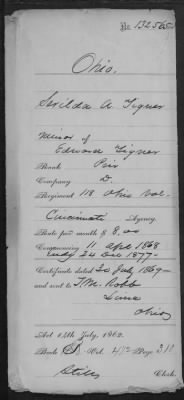 No. 132565
Ohio.
Serilda A. Tignor
Minor of
Edward Tignor
Rank Priv
Company D
Regiment 118 Ohio Vol.
Cincinnati Agency
Rate per month $ 8.00
Commencing 11 Apl 1868
ending 24 Dec 1877-
Certificate dated 20 July 1869-
and sent to T.M. Robb
Lima
Ohio
Act 14th July, 1862.
Book Vol. Page 311
Stiles Clerk.